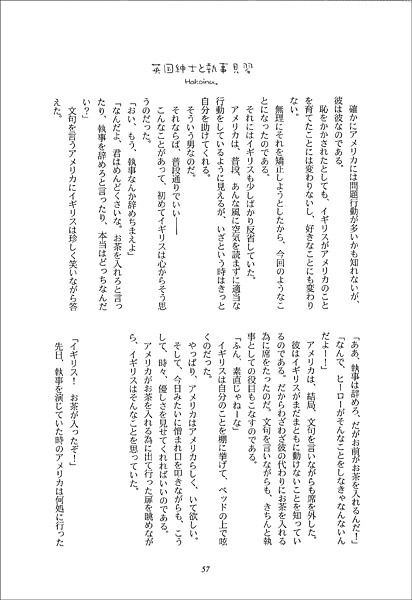 英国紳士と執事見習
Hakoinu。
確かにアメリカには問題行動が多いかも知れないが、
彼は彼なのである。
恥をかかされたとしても、イギリスがアメリカのこと
を育てたことには変わりないし、好きなことにも変わり
ない。
無理にそれを矯正しようとしたから、今回のようなこ
とになったのである。
それにはイギリスも少しばかり反省していた。
アメリカは、普段、あんな風に空気を読まずに適当な
行動をしているように見えるが、いざという時はきっと
自分を助けてくれる。
そういう男なのだ。
それならば、普段通りでいい――
こんなことがあって、初めてイギリスは心からそう思
うのだった。
「おい、もう、執事なんか辞めちまえよ」
「なんだよ、君はめんどくさいな。お茶を入れろと言っ
たり、執事を辞めろと言ったり、本当はどっちなんだ
い？」
文句を言うアメリカにイギリスは珍しく笑いながら答
えた。
「ああ、執事は辞めろ、だがお前がお茶を入れるんだ！」
「なんで、ヒーローがそんなことをしなきゃなんないん
だよー！」
アメリカは、結局、文句を言いながらも席を外した。
彼はイギリスがまだまともに動けないことを知ってい
るのである。だからわざわざ彼の代わりにお茶を入れる
為に席をたったのだ。文句を言いながらも、きちんと執
事としての役目もこなすのである。
「ふん、素直じゃねーな」
イギリスは自分のことを棚に挙げて、ベッドの上で呟
くのだった。
やっぱり、アメリカはアメリカらしく、いて欲しい。
そして、今日みたいに憎まれ口を叩きながらも、こう
して、時々、優しさを見せてくれればいいのである。
アメリカがお茶を入れる為に出て行った扉を眺めなが
ら、イギリスはそんなことを思っていた。
「イギリス！　お茶が入ったぞー！」
先日、執事を演じていた時のアメリカは何処に行った
57